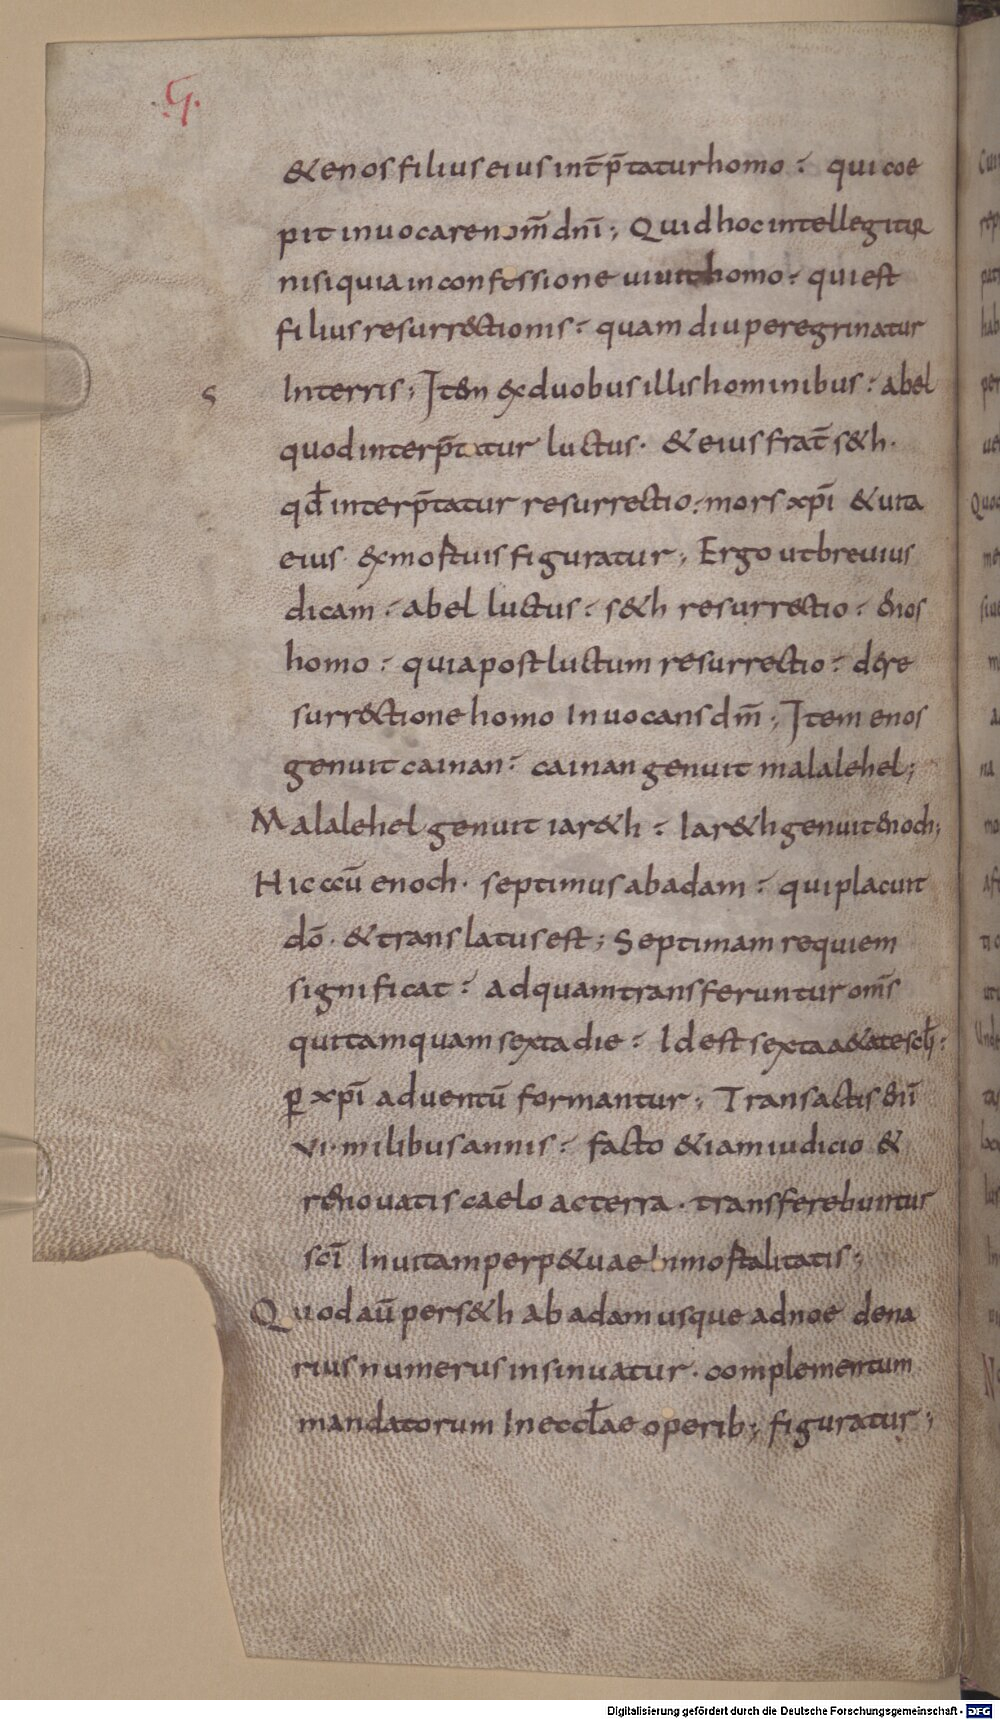 G
& enos filius eius int̄p̄taturhomo: qui coe
pit inuocare nom̄ dnī; Quid hoc intellegitur
nisi quia in confessione uiuit homo: qui est
filius resurr&ctionis: quam diu peregrinatur
s Interris; Itē̄m ex duobus illis hominibus: abel
quod interp̄tatur luctus· & eius frat̄ s&h·
qd̄ interp̄tatur resurrectio: mors xp̄i & uita
eius· ex mortuis figuratur; Ergo ut breuius
dicam: abel luctus: s&h resurrectio: enos
homo: quia post luctum resurrectio: dere
surr&ctione homo Inuocans dm̄; Item enos
genuit cainan: cainan genuit malalehel;
Malalehel genuit iar&h: Iar&h genuit enoch;
Hic ccū enoch· septimus ab adam: qui placuit
dō· & translatus est; Septimam requiem
significat: ad quam transferuntur om̄s
qui tamquam sexta die: Id est sexta a&ate sclī:
ꝑ xp̄i aduentū formantur; Transactis enī
vi· milibus annis: facto &iam iudicio &
renouatis caelo ac terra· transferebuntur
scī In uitam perp&uae Inmortalitatis;
Quod aū per s&h ab adam usque ad noe dena
rius numerus insinuatur· complementum
mandatorum In eccłae operib; figuratur;
Digitalisierung gefördert durch die Deutsche Forschungsgemeinschaft - DFG